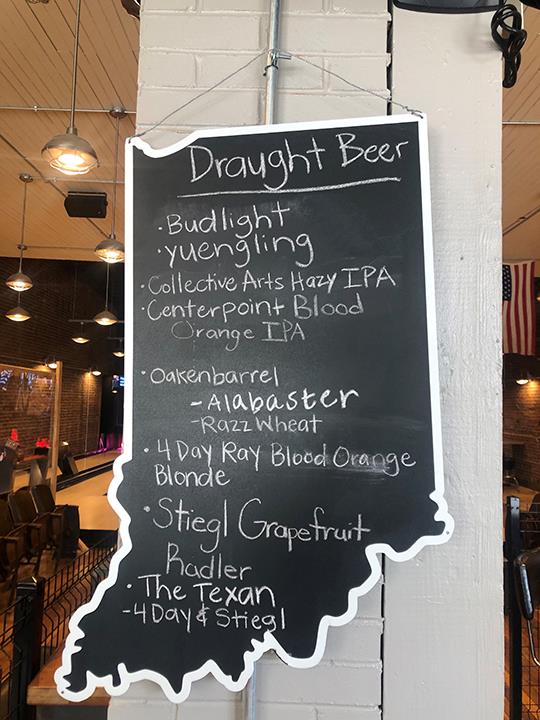 Draught Beer
· Budlight
· yuengling
· Collective Arts Hazy IPA
· Centerpoint Blood
Orange IPA
· Oakenbarrel
- Alabaster
- Razz Wheat
· 4 Day Ray Blood Orange
Blonde
· Stiegl Grapefruit
Radler
· The Texan
- 4 Day & Stiegl